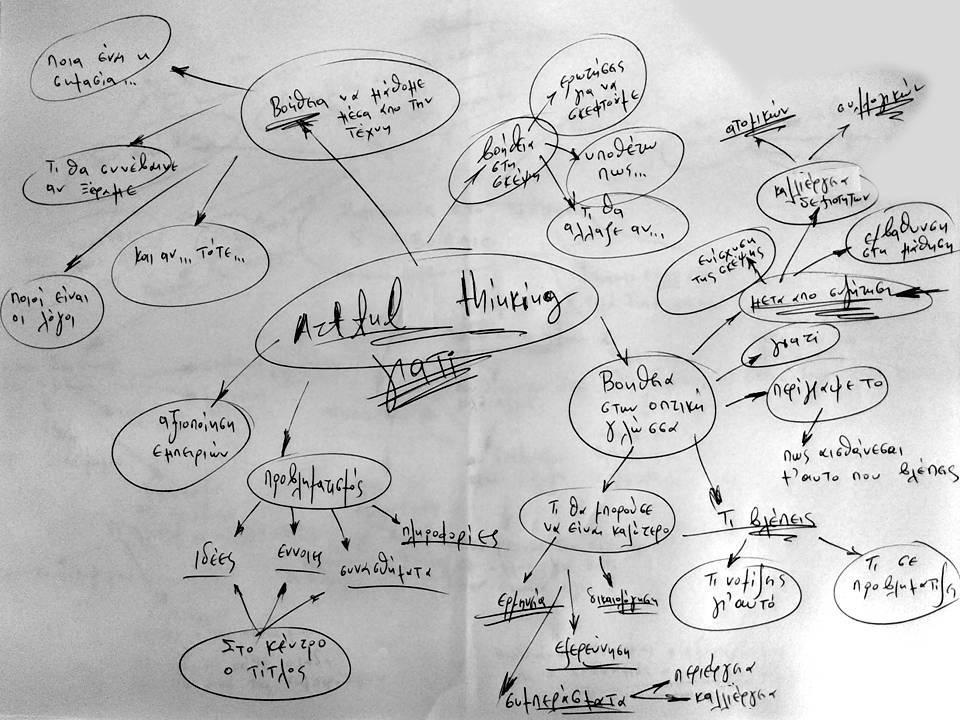 Ποια είναι η
σημασία...
Βοήθεια να μάθομε
μέσα από την
τέχνη
ερωτήσεις
για να
σκεφτούμε
βοήθεια
στη
σκέψη
υποθέτω
πως...
Τι θα
άλλαξε αν...
ατομικών
συλλογικών
καλλιέργεια
δεξιοτήτων
ενίσχυση
της σκέψης
εμβάθυνση
στη μάθηση
μετά από συζήτηση
Τι θα συνέβαινε
αν ξέραμε
και αν... τότε...
ποιοί είναι
οι λόγοι
Artful thinking
γιατί
αξιοποίηση
εμπειριών
προβληματισμός
ιδέες
έννοιες
συναισθήματα
πληροφορίες
Στο κέντρο
ο τίτλος
Βοήθεια
στην οπτική
γλώσσα
γιατί
περίγραψε το
πως αισθάνεσαι
μ'αυτο που βλέπεις
Τι θα μπορούσε
να είναι καλύτερο
Τι βλέπεις
Τι νομίζεις
γι'αυτό
Τι σε
προβληματίζει
ερμηνεία
δικαιολόγηση
εξερεύνηση
συμπεράσματα
περιέργεια
καλλιέργεια